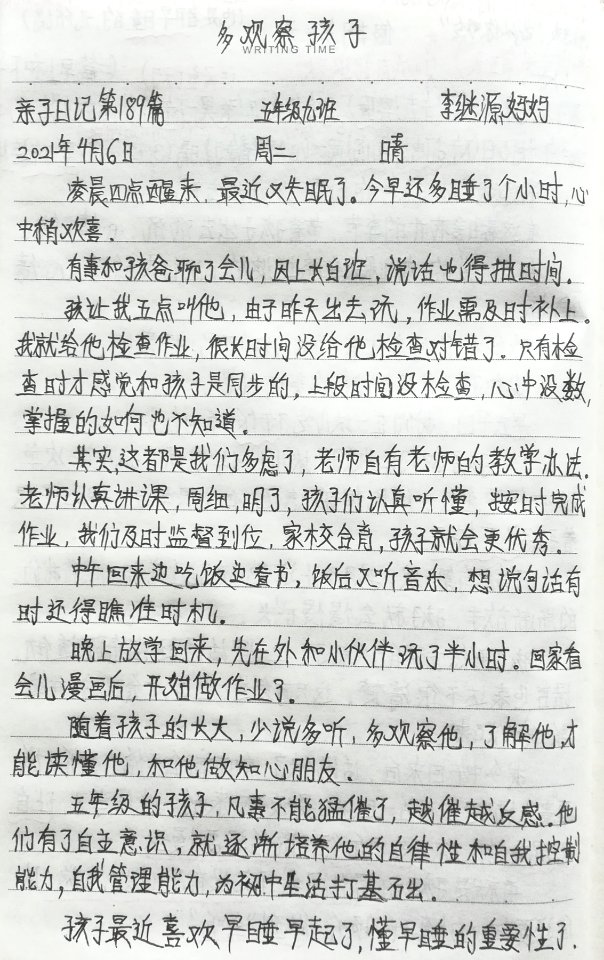 多观察孩子
WRITING TIME
亲子日记第189篇 五年级九班 李继源妈妈
2021年4月6日 周二 晴
凌晨四点醒来,最近又失眠了。今早还多睡了个小时,心
中稍欢喜.
有事和孩爸聊了会儿,因上长白班,说话也得抽时间.
孩让我五点叫他,由于昨天出去玩,作业需及时补上.
我就给他检查作业,很长时间没给他检查对错了.只有检
查时才感觉和孩子是同步的,上段时间没检查,心中没数,
掌握的如何也不知道.
其实,这都是我们多虑了,老师自有老师的教学办法.
老师认真讲课,周细,明了,孩子们认真听懂,按时完成
作业,我们及时监督到位,家校合育,孩子就会更优秀.
中午回来边吃饭边看书,饭后又听音乐,想说句话有
时还得瞧准时机.
晚上放学回来,先在外和小伙伴玩了半小时.回家看
会儿漫画后,开始做作业了.
随着孩子的长大,少说多听,多观察他,了解他,才
能读懂他,和他做知心朋友.
五年级的孩子,凡事不能猛催了,越催越反感.他
们有了自主意识,就逐渐培养他的自律性和自我控制
能力,自我管理能力,为初中生活打基石出.
孩子最近喜欢早睡早起了,懂早睡的重要性了.